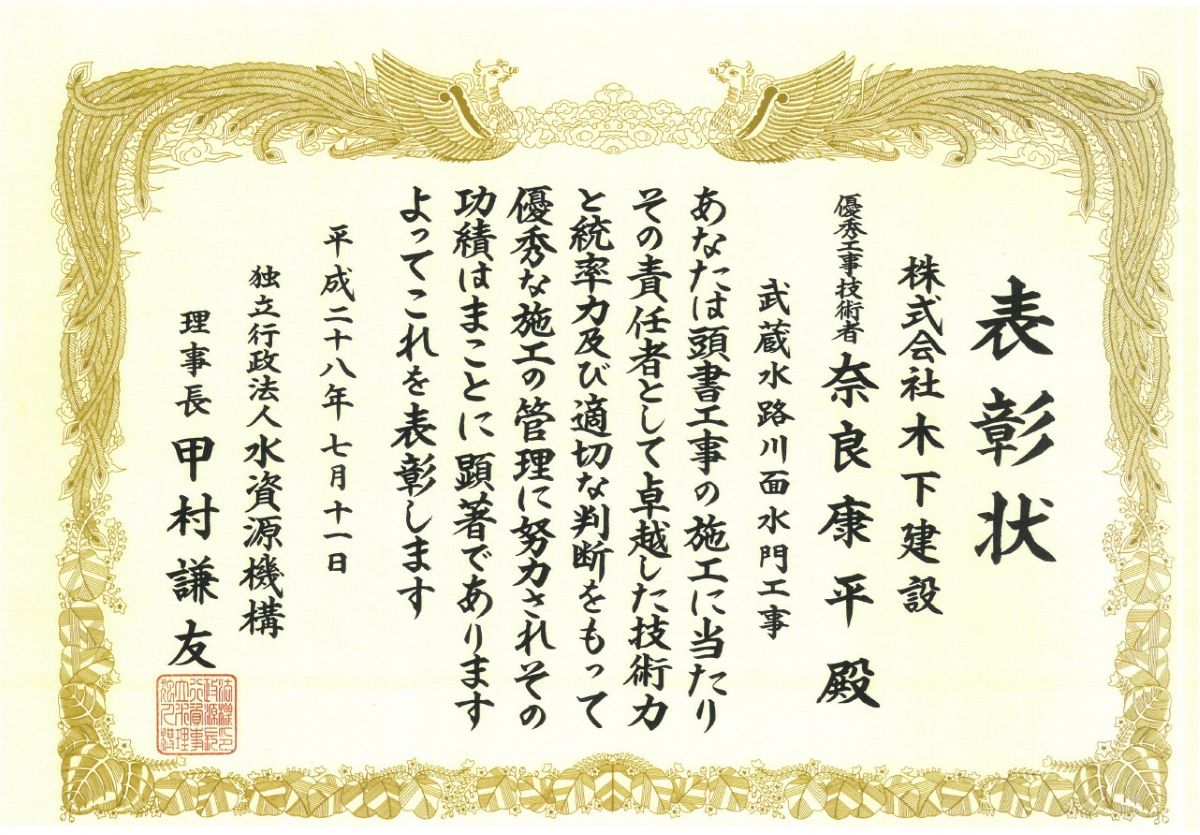 表彰状
株式会社木下建設
優秀工事技術者 奈良康平 殿
武蔵水路川面水門工事
あなたは頭書工事の施工に当たり
その責任者として卓越した技術力
と統率力及び適切な判断をもって
優秀な施工の管理に努力されその
功績はまことに顕著であります
よってこれを表彰します
平成二十八年七月十一日
独立行政法人水資源機構
理事長 甲村謙友